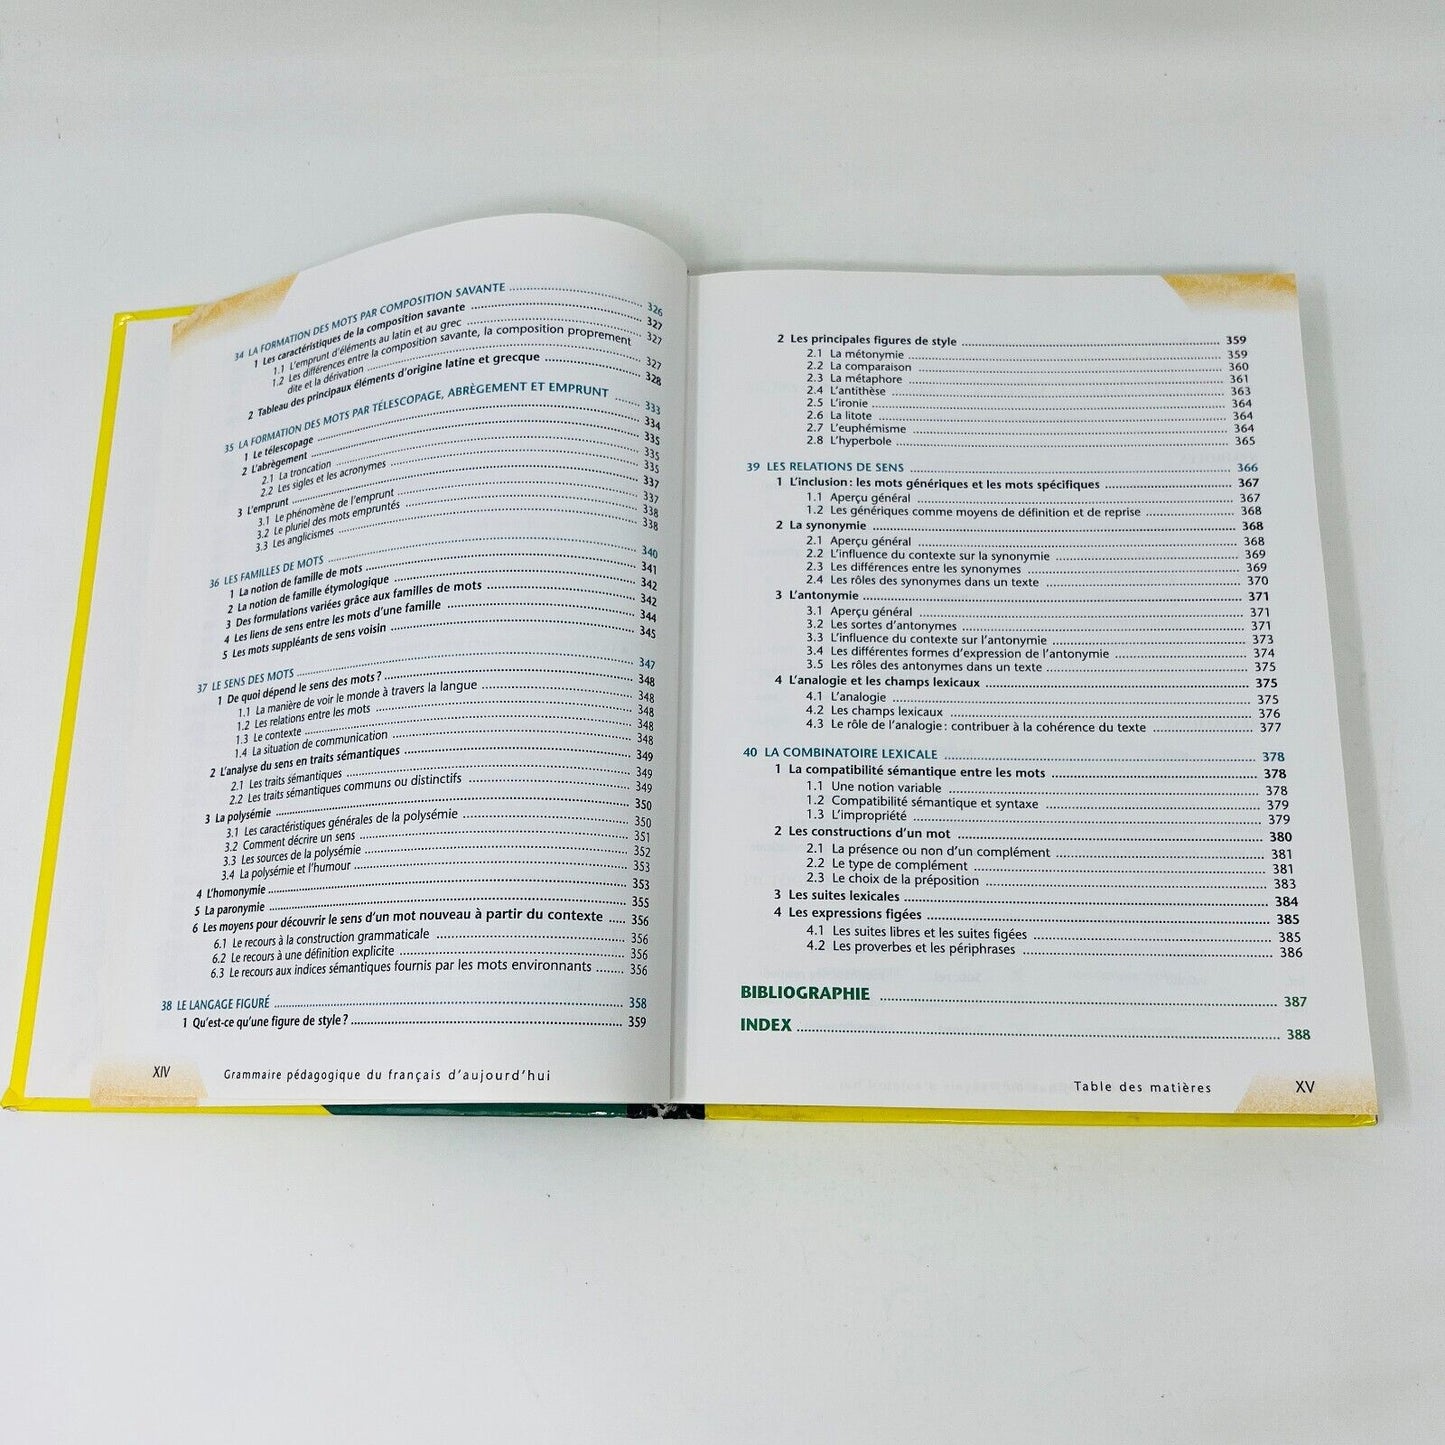 34 LA FORMATION DES MOTS PAR COMPOSITION SAVANTE ........ 326
1 Les caractéristiques de la composition savante ........ 327
1.1 L'emprunt d'éléments au latin et au grec ........ 327
1.2 Les différences entre la composition savante, la composition proprement
dite et la dérivation ........ 327
2 Tableau des principaux éléments d'origine latine et grecque ........ 328
35 LA FORMATION DES MOTS PAR TÉLESCOPAGE, ABRÈGEMENT ET EMPRUNT ........ 333
1 Le télescopage ........ 334
2 L'abrègement ........ 335
2.1 La troncation ........ 335
2.2 Les sigles et les acronymes ........ 335
3 L'emprunt ........ 337
3.1 Le phénomène de l'emprunt ........ 337
3.2 Le pluriel des mots empruntés ........ 338
3.3 Les anglicismes ........ 338
36 LES FAMILLES DE MOTS ........ 340
1 La notion de famille de mots ........ 341
2 La notion de famille étymologique ........ 342
3 Des formulations variées grâce aux familles de mots ........ 342
4 Les liens de sens entre les mots d'une famille ........ 344
5 Les mots suppléants de sens voisin ........ 345
37 LE SENS DES MOTS ........ 347
1 De quoi dépend le sens des mots ? ........ 348
1.1 La manière de voir le monde à travers la langue ........ 348
1.2 Les relations entre les mots ........ 348
1.3 Le contexte ........ 348
1.4 La situation de communication ........ 348
2 L'analyse du sens en traits sémantiques ........ 349
2.1 Les traits sémantiques ........ 349
2.2 Les traits sémantiques communs ou distinctifs ........ 349
3 La polysémie ........ 350
3.1 Les caractéristiques générales de la polysémie ........ 350
3.2 Comment décrire un sens ........ 351
3.3 Les sources de la polysémie ........ 352
3.4 La polysémie et l'humour ........ 353
4 L'homonymie ........ 353
5 La paronymie ........ 355
6 Les moyens pour découvrir le sens d'un mot nouveau à partir du contexte ........ 356
6.1 Le recours à la construction grammaticale ........ 356
6.2 Le recours à une définition explicite ........ 356
6.3 Le recours aux indices sémantiques fournis par les mots environnants ........ 356
38 LE LANGAGE FIGURÉ ........ 358
1 Qu'est-ce qu'une figure de style ? ........ 359
XIV Grammaire pédagogique du français d'aujourd'hui
2 Les principales figures de style ........ 359
2.1 La métonymie ........ 359
2.2 La comparaison ........ 360
2.3 La métaphore ........ 361
2.4 L'antithèse ........ 363
2.5 L'ironie ........ 364
2.6 La litote ........ 364
2.7 L'euphémisme ........ 364
2.8 L'hyperbole ........ 365
39 LES RELATIONS DE SENS ........ 366
1 L'inclusion : les mots génériques et les mots spécifiques ........ 367
1.1 Aperçu général ........ 367
1.2 Les génériques comme moyens de définition et de reprise ........ 368
2 La synonymie ........ 368
2.1 Aperçu général ........ 368
2.2 L'influence du contexte sur la synonymie ........ 369
2.3 Les différences entre les synonymes ........ 369
2.4 Les rôles des synonymes dans un texte ........ 370
3 L'antonymie ........ 371
3.1 Aperçu général ........ 371
3.2 Les sortes d'antonymes ........ 371
3.3 L'influence du contexte sur l'antonymie ........ 373
3.4 Les différentes formes d'expression de l'antonymie ........ 374
3.5 Les rôles des antonymes dans un texte ........ 375
4 L'analogie et les champs lexicaux ........ 375
4.1 L'analogie ........ 375
4.2 Les champs lexicaux ........ 376
4.3 Le rôle de l'analogie : contribuer à la cohérence du texte ........ 377
40 LA COMBINATOIRE LEXICALE ........ 378
1 La compatibilité sémantique entre les mots ........ 378
1.1 Une notion variable ........ 378
1.2 Compatibilité sémantique et syntaxe ........ 379
1.3 L'impropriété ........ 379
2 Les constructions d'un mot ........ 380
2.1 La présence ou non d'un complément ........ 381
2.2 Le type de complément ........ 381
2.3 Le choix de la préposition ........ 383
3 Les suites lexicales ........ 384
4 Les expressions figées ........ 385
4.1 Les suites libres et les suites figées ........ 385
4.2 Les proverbes et les périphrases ........ 386
BIBLIOGRAPHIE ........ 387
INDEX ........ 388
Table des matières XV